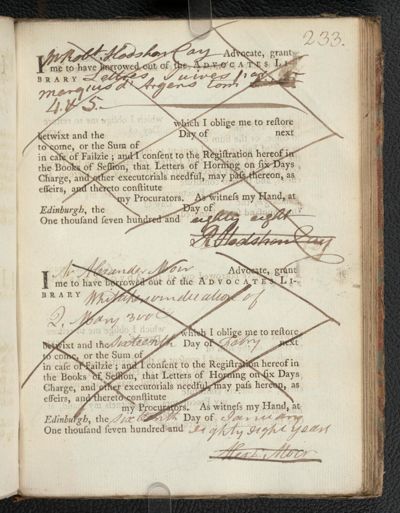 233.
I Mr Robt. Hodshon Cay Advocate, grant
me to have borrowed out of the ADVOCATES LI-
BRARY Lettres Juives par
marquis d' Argens tom
4 & 5.
which I oblige me to restore
betwixt and the Day of next
to come, or the Sum of
in case of Failzie; and I consent to the Registration hereof in
the Books of Session, that Letters of Horning on six Days
Charge, and other executorials needful, may pass thereon, as
effeirs, and thereto constitute
my Procurators. As witness my Hand, at
Edinburgh, the Day of
One thousand seven hundred and eighty eight
R Hodshon Cay
I Mr Alexander Moir Advocate, grant
me to have borrowed out of the ADVOCATES LI-
BRARY Whitakers vindication of
Q. Mary 3 vol
which I oblige me to restore
betwixt and the sixteenth Day of febry next
to come, or the Sum of
in case of Failzie; and I consent to the Registration hereof in
the Books of Session, that Letters of Horning on six Days
Charge, and other executorials needful, may pass hereon, as
effeirs, and thereto constitute
my Procurators. As witness my Hand, at
Edinburgh, the sixteenth Day of January
One thousand seven hundred and eighty eight years
Moir